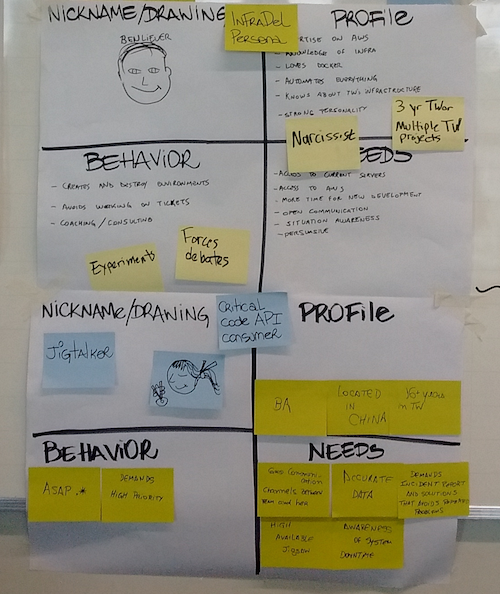 NICKNAME/DRAWING
InfraDel
Personal
PROFILE
BENLIEVER
EXPERTISE ON AWS
KNOWLEDGE OF INFRA
- LOVES DOCKER
- AUTOMATES EVERYTHING
- KNOWS ABOUT TW'S INFRASTRUCTURE
- STRONG PERSONALITY
Narcissist
3 yr TWer
Multiple TW
projects
BEHAVIOR
- CREATES AND DESTROY ENVIRONMENTS
- AVOIDS WORKING ON TICKETS
- COACHING / CONSULTING
Experiments
Forces
debates
NEEDS
- ACCESS TO CURRENT SERVERS
- ACCESS TO AWS
- MORE TIME FOR NEW DEVELOPMENT
- OPEN COMMUNICATION
- SITUATION AWARENESS
- PERSUASIVE
NICKNAME/DRAWING
Critical
code API
consumer
PROFILE
JIGTALKER
BA
LOCATED
IN
CHINA
in TW
BEHAVIOR
ASAP.*
DEMANDS
HIGH PRIORITY
NEEDS
Good Communi-
cation
Channels between
team and here
ACCURATE
DATA
DEMANDS
INCIDENT REPORT
AND SOLUTIONS
THAT AVOIDS REPEATED
PROBLEMS
HIGH
AVAILABLE
JIGSAW
AWARENESS
OF SYSTEM
DOWNTIME